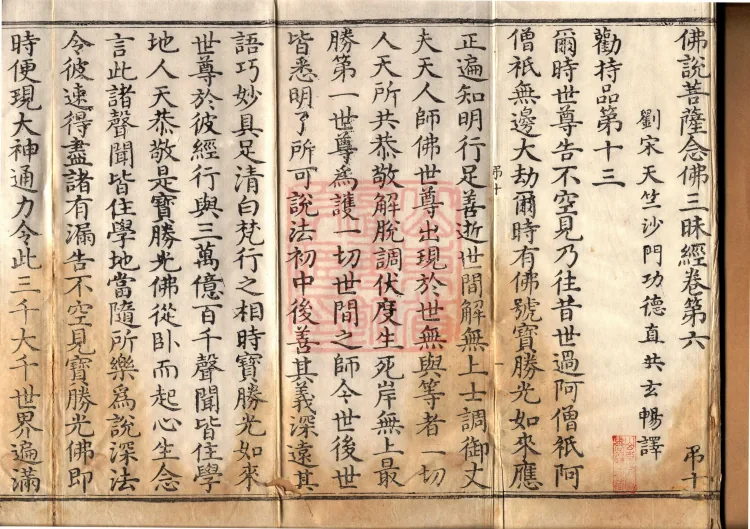 佛說菩薩念佛三昧經卷第六 弔十
劉宋天竺沙門功德直共玄暢譯
勸持品第十三
爾時世尊告不空見乃往昔世過阿僧祇阿
僧祇無邊大劫爾時有佛號寶勝光如來應
弔十
正遍知明行足善逝世間解無上士調御丈
夫天人師佛世尊出現於世無與等者一切
人天所共恭敬解脫調伏度生死岸無上最
勝第一世尊爲護一切世間之師今世後世
皆悉明了所可說法初中後善其義深遠其
語巧妙具足清白梵行之相時寶勝光如來
世尊於彼經行與三萬億百千聲聞皆住學
地人天恭敬是寶勝光佛從卧而起心生念
言此諸聲聞皆住學地當隨所樂爲說深法
令彼速得盡諸有漏告不空見寶勝光佛即
時便現大神通力令此三千大千世界遍滿